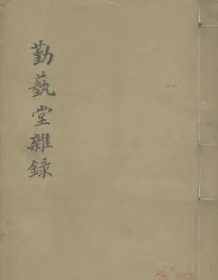 勤藝堂雜録